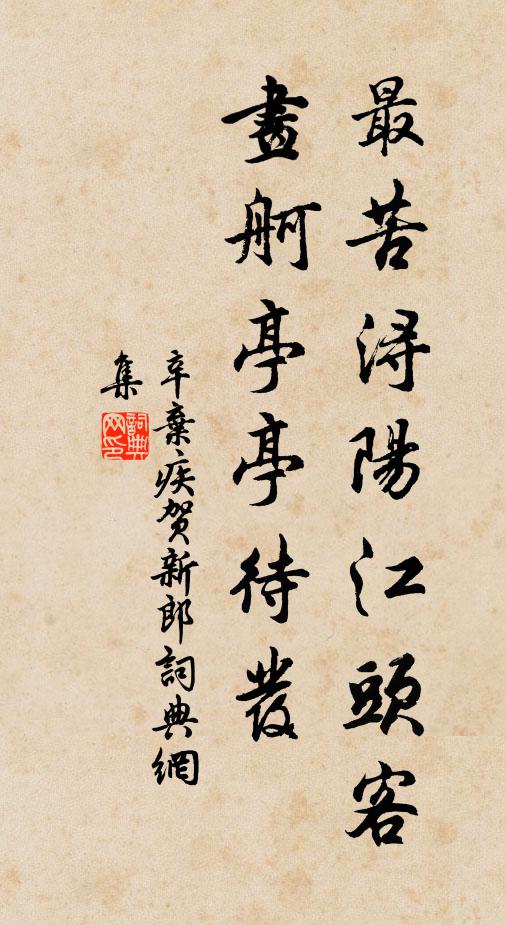 最苦浔陽江頭客
畫舸亭亭待發
辛棄疾贺新郎詞典網
集
詞典网印